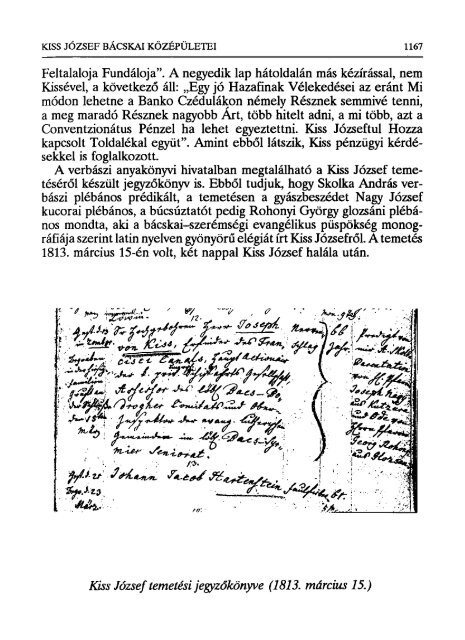 KISS JÓZSEF BÁCSKAI KÖZÉPÜLETEI 1167
Feltalaloja Fundáloja”. A negyedik lap hátoldalán más kézírással, nem
Kissével, a következő áll: „Egy jó Hazafinak Vélekedései az eránt Mi
módon lehetne a Banko Czédulákon némely Résznek semmivé tenni,
a meg maradó Résznek nagyobb Árt, több hitelt adni, a mi több, azt a
Conventzionátus Pénzel ha lehet egyeztettni. Kiss Józseftul Hozza
kapcsolt Toldalékal együt”. Amint ebből látszik, Kiss pénzügyi kérdé-
sekkel is foglalkozott.
A verbászi anyakönyvi hivatalban megtalálható a Kiss József teme-
téséről készült jegyzőkönyv is. Ebből tudjuk, hogy Skolka András ver-
bászi plébános prédikált, a temetésen a gyászbeszédet Nagy József
kucorai plébános, a búcsúztatót pedig Rohonyi György glozsáni plébá-
nos mondta, aki a bácskai–szerémségi evangélikus püspökség monog-
ráfiája szerint latin nyelven gyönyörű elégiát írt Kiss Józsefről. A temetés
1813. március 15-én volt, két nappal Kiss József halála után.
12.
Herr Joseph
von Kiss, Erfinder des Fran
cisci Canals, Haupt Actionär
Assessor des Bacs-Bo
drogher Comitats und Ober
Inspektor der evang.
Gemeinden im Bacs-
mier Seniorat.
66
Jahr
Joseph Nagy
Georg Rohon
13.
Johann Jacob Hartenstein
März
Kiss József temetési jegyzőkönyve (1813. március 15.)